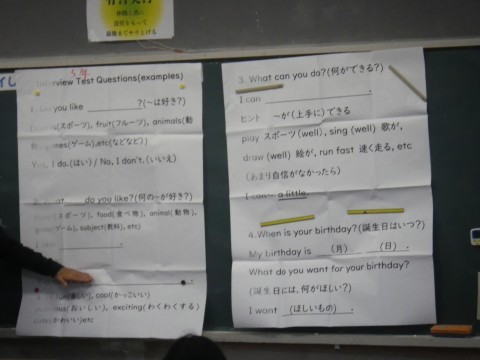 仲間と共に
責任をもって
最後までやりとげる
5年
Interview Test Questions(examples)
you like ?(〜は好き?)
(スポーツ), fruit(フルーツ), animals(動
(ゲーム),etc(などなど))
I do.(はい) / No, I don't.(いいえ)
do you like?(何の〜が好き?)
スポーツ), food(食べ物), animal(動物),
ゲーム), subject(教科), etc
cool(かっこいい)
(おいしい), exciting(わくわくする)
かわいい)etc
3. What can you do?(何ができる?)
I can .
ヒント 〜が(上手に)できる
play スポーツ(well), sing (well) 歌が,
draw (well) 絵が, run fast 速く走る, etc
(あまり自信がなかったら)
I can a little.
4.When is your birthday?(誕生日はいつ?)
My birthday is (月) (日) .
What do you want for your birthday?
(誕生日には、何がほしい?)
I want (ほしいもの) .